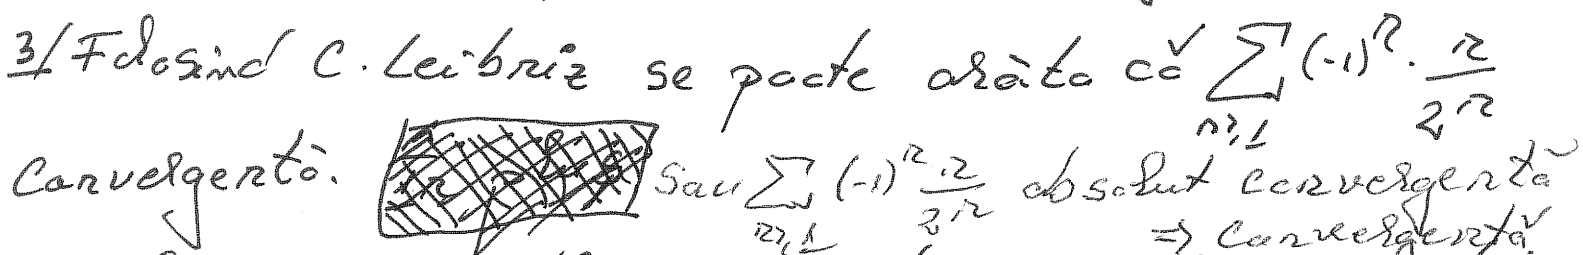 3/ Folosind C. Leibniz se poate arăta că ∑_{n≥1} (-1)^n · n/2^n
convergentă. sau ∑_{n≥1} (-1)^n n/2^n absolut convergentă
⇒ convergentă.